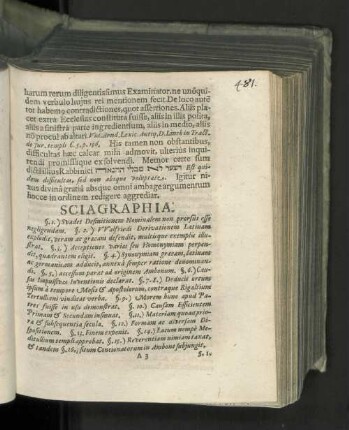 481.
harum rerum diligentissimus Examinator, ne unôquidem
verbulo hujus rei mentionem fecit. De loco autē
tot habemo contradictiones, quot assertiones. Aliis placet
extra Ecclesias constituta fuisse, aliis in illis posita,
aliis a sinistrâ parte ingredientium, aliis in medio, aliis
nō procul ab altari.
His tamen non obstantibus,
difficultas hæc calcar mihi admovit, ulterius inquirendi
promissaque exsolvendi. Memor certe sum
Rabbinici
Est quidem
difficultas, sed non absque voluptate. Igitur nimus
divinâ gratiâ absque omni ambage argumentum
hocce in ordinem redigere aggrediar.
SCIAGRAPHIA:
§. 1.) Studet Definitionem Nominalem non prorsus esse
negligendam. §. 2.) VValfridi Derivationem Latinam
explodit, veram ac græcam defendit, multisque exemplis illustrat,
§. 3.) Acceptiones varias seu Homonymiam perpendit,
quadrantem eligit. §. 4.) Synonymiam græcam, latinam
ac germanicam adducit, annexâ semper ratione denominandi,
§. 5.) accessum parat ad originem Ambonum. §. 6.) Causas
Impulsivas inventionis declarat. §. 7. 8.) Deducit ortum
ipsum à tempore Mosis & apostolorum, contraque Rigaltium
Tertulliani vindicat verba. §. 9.) Morem hunc apud Patres
fuisse in usu demonstrat. §. 10.) Causam Efficientem
Primam & Secundam insinuat. §. 11.) Materiam quoque priora
& subsequentia secula. §. 12.) Formam ac diversam Dispositionem.
§. 13. Finem exponit. §. 14.) Locum nempè Meditullium
templi approbat. §. 15.) Reverentiam nimiam taxat,
& tandem §. 16.) situm Concionatorum in Ambone subjungit.
A 3
§. 1.